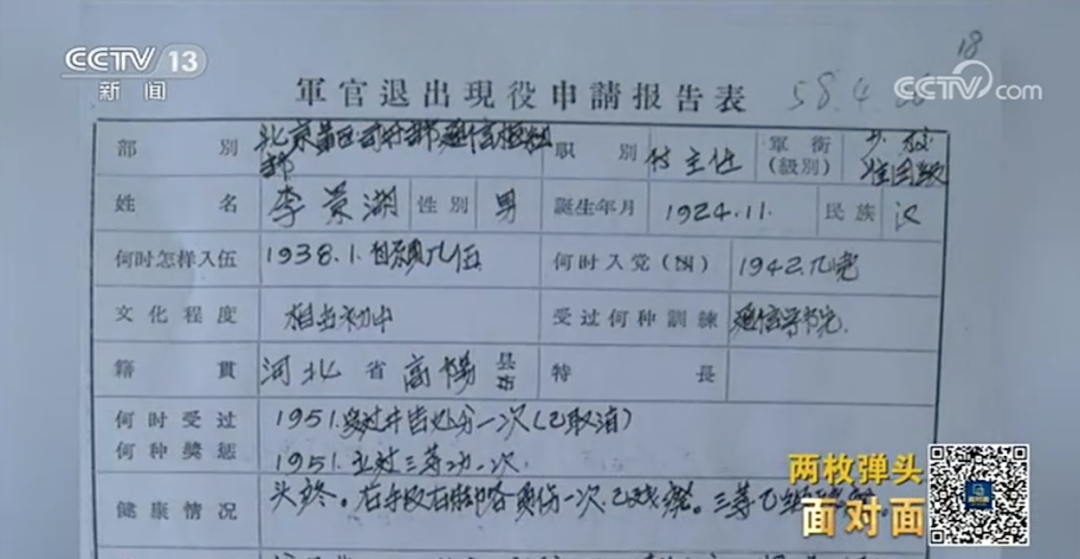 CCTV 13
新闻
18
CCTV.com
軍官退出現役申請报告表 58.4.
部別 北京軍区司令部通信枢纽部 职別 付主任 軍衔(級別) 少校 准团級
姓名 李景湖 性別 男 誕生年月 1924.11. 民族 汉
何时怎样入伍 1938.1.自願入伍 何时入党(团) 1942.入党
文化程度 相当初中 受过何种訓練 通信学校
籍貫 河北省高陽县市 特長
何时受过何种獎惩 1951.受过井告处分一次(已取消)
1951.立过三等功一次.
健康情况 头疼。右手及右脚各負伤一次.已残廢。三等乙级
两枚弹头
面对面